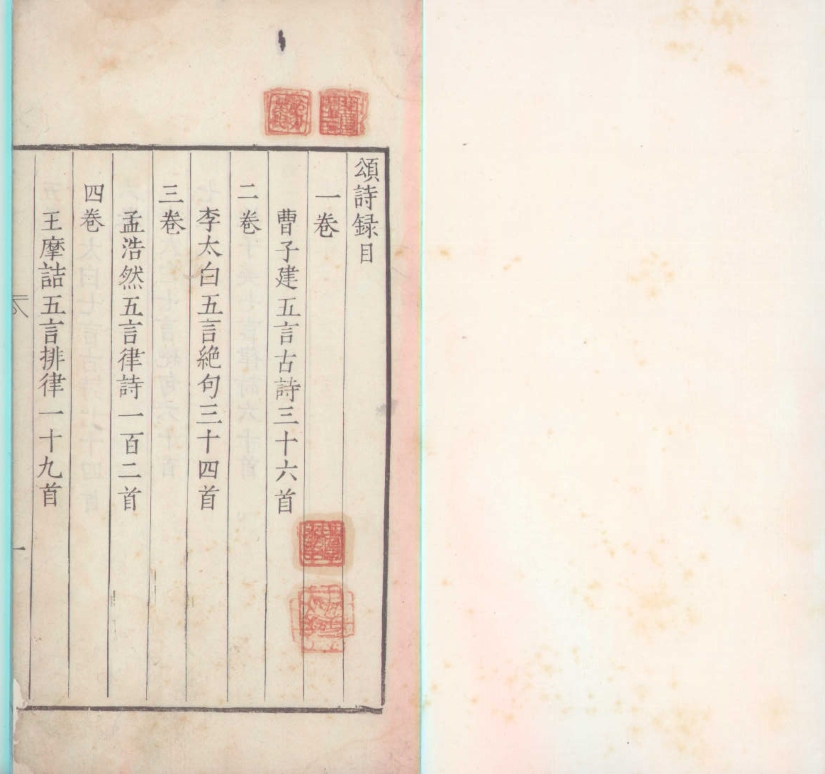 頌詩録目
一卷
曹子建五言古詩三十六首
二卷
李太白五言絶句三十四首
三卷
孟浩然五言律詩一百二首
四卷
王摩詰五言排律一十九首
一